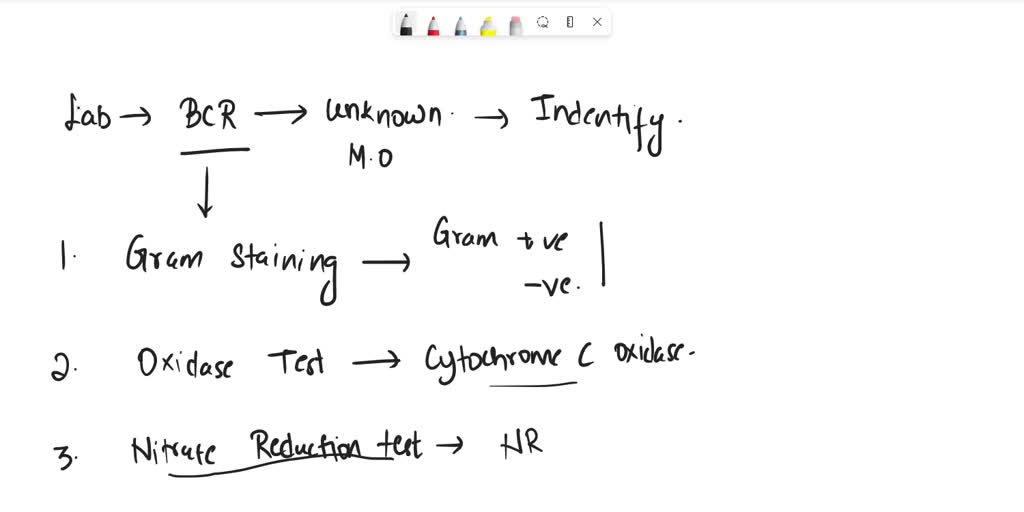 Lab → BCR → unknown. → Indentify.
M.O
↓
1. Gram Staining → Gram +ve
-ve.
2. Oxidase Test → Cytochrome C oxidase.
3. Nitrate Reduction test → NR